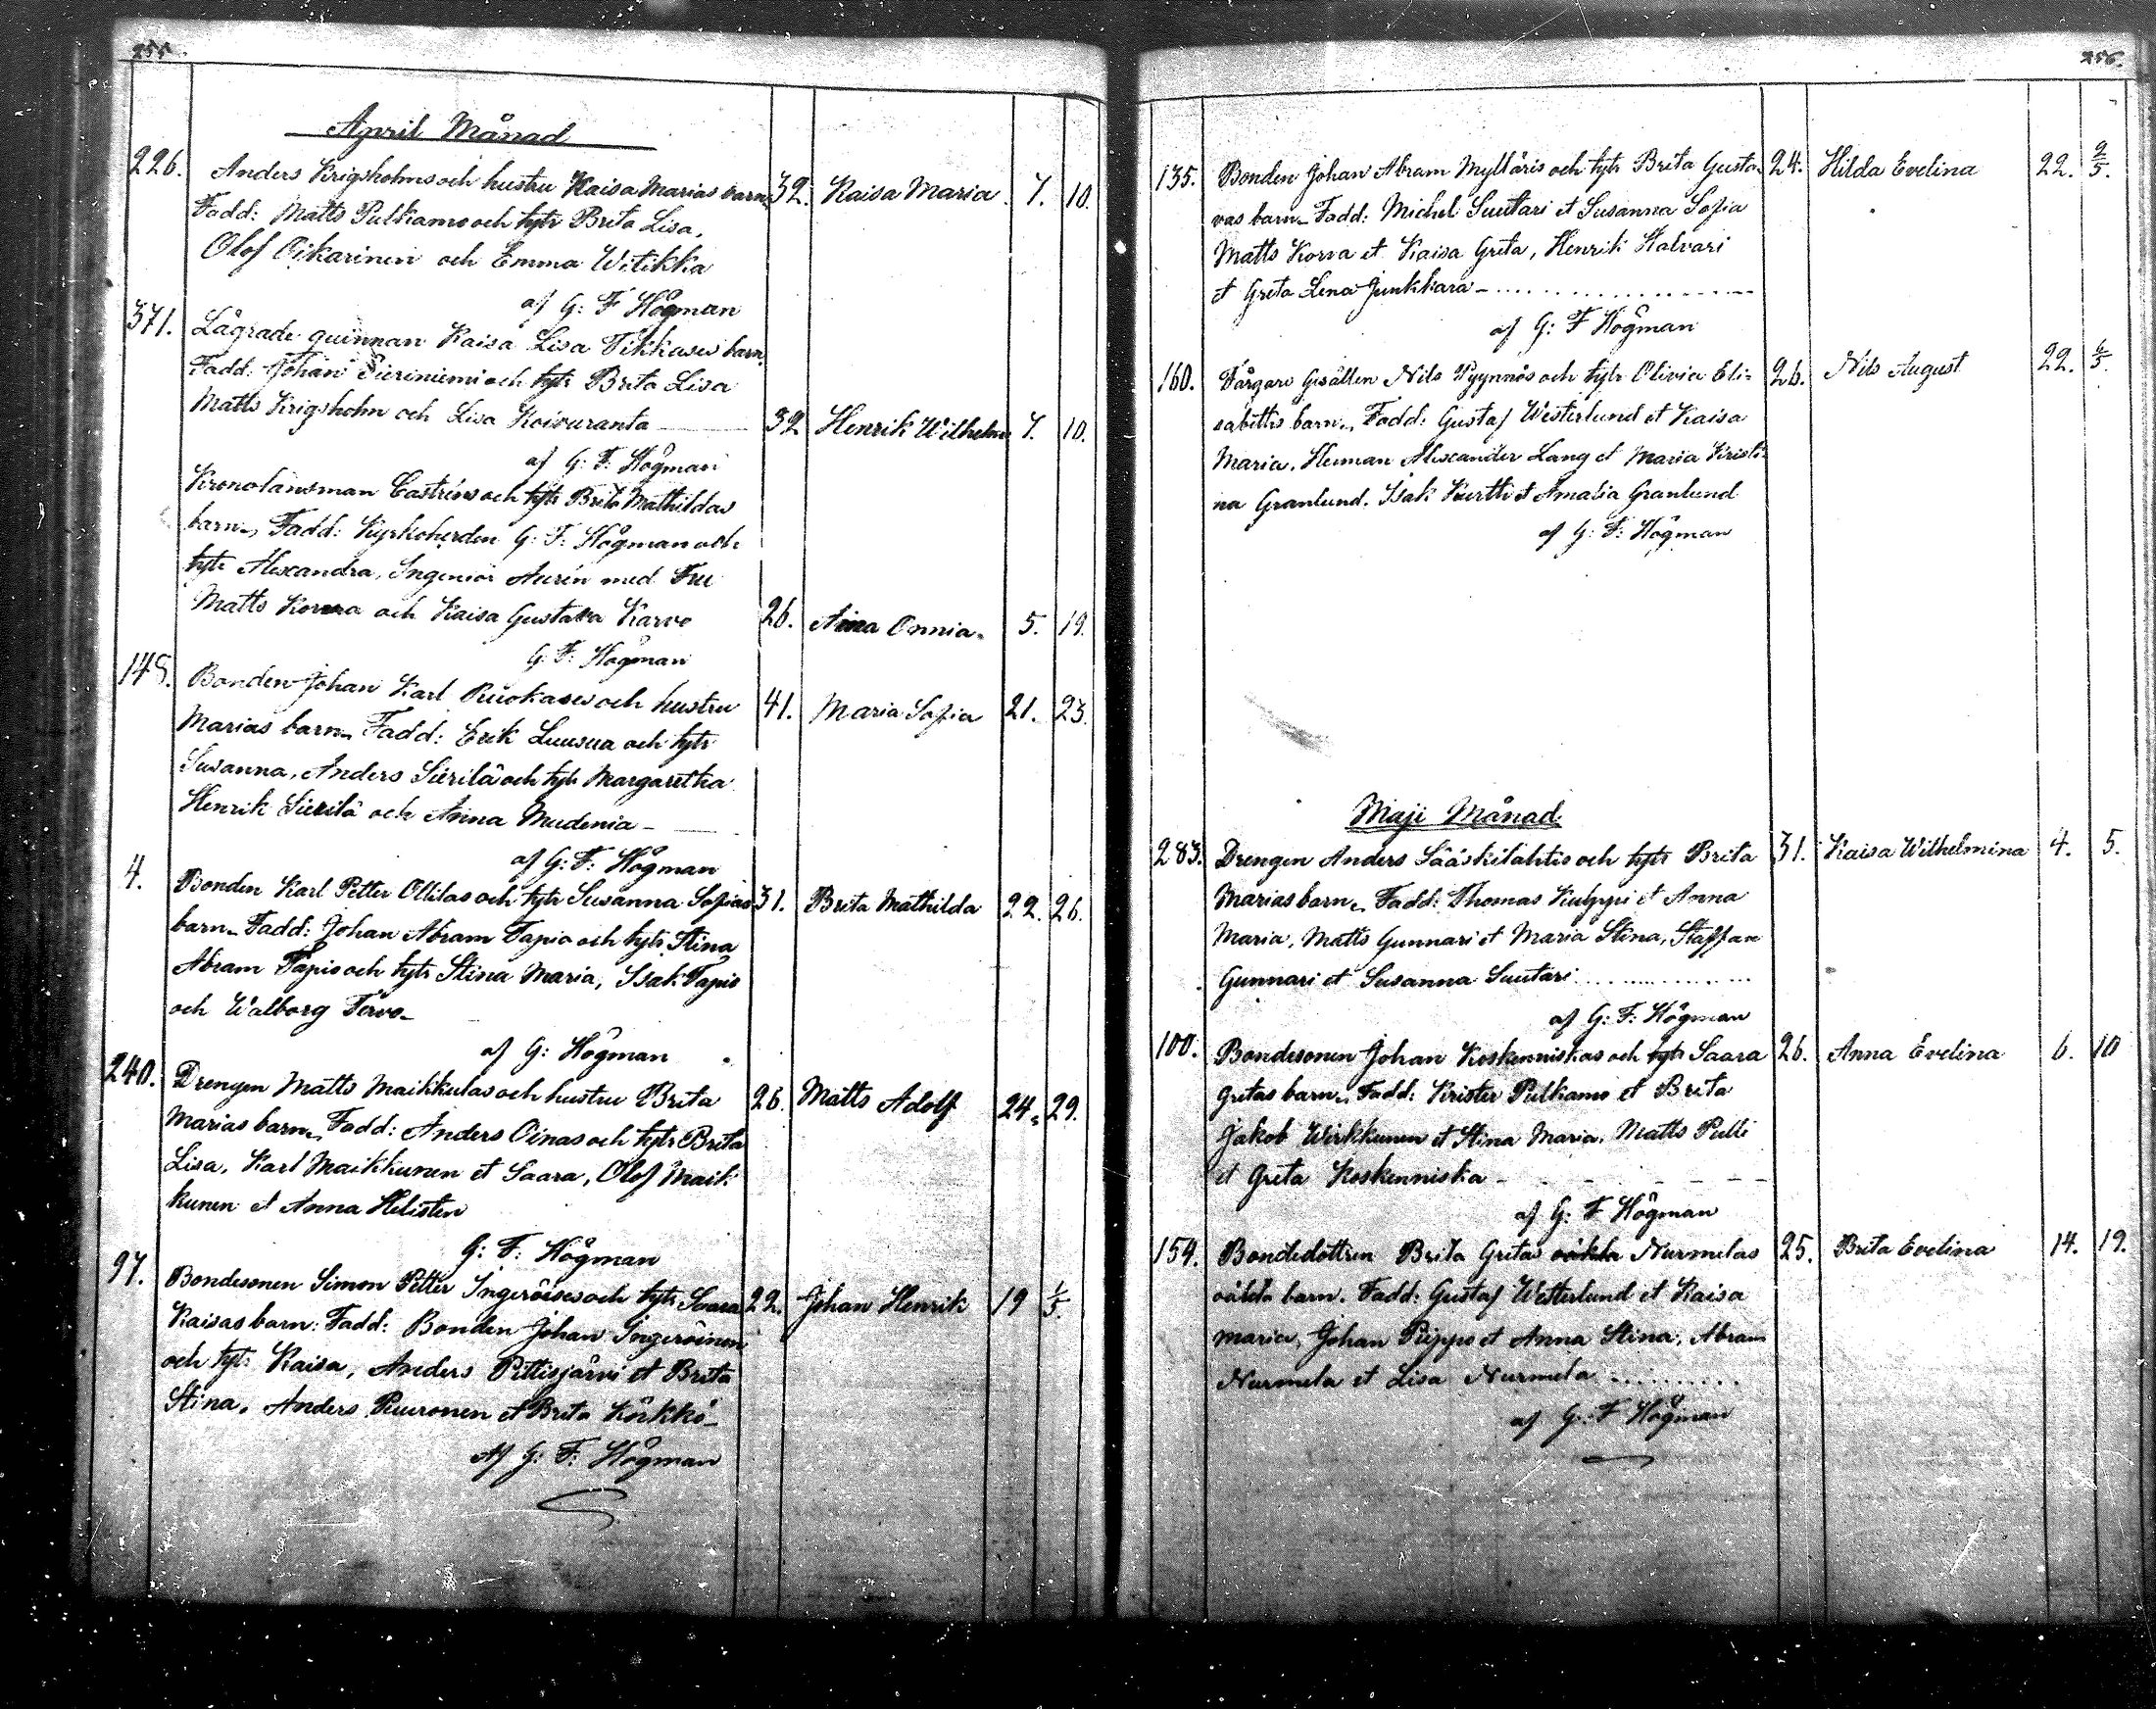 255.
April Månad
226. Anders Krigsholms och hustru Kaisa Marias barn. 32. Kaisa Maria. 7. 10.
Fadd: Matts Pulkamo och hytr Brita Lisa,
Olof Oikarinen och Emma Witikka
af G: F Högman
371. Lägrade quinnan Kaisa Lisa Tikkases barn,
Fadd: Johan Sieriniemi och hytr Brita Lisa
Matts Krigsholm och Lisa Koivuranta 32 Henrik Wilhelm 7. 10.
af G: F: Högman
Kronolänsman Castréns och hytr Brita Mathildas
barn, Fadd: Kyrkoherden G: F: Högman och
hytr Alexandra, Ingeniör Aurén med Fru
Matts Korva och Kaisa Gustava Karvo 26. Aina Onnia. 5. 19.
G: F: Högman
148. Bonden Johan Karl Ruokases och hustru 41. Maria Sofia 21. 23.
Marias barn, Fadd: Erik Luusua och hytr
Susanna, Anders Sierilä och hytr Margaretha
Henrik Sierilä och Anna Mudenia
af G: F: Högman
4. Bonden Karl Petter Ollilas och hytr Susanna Sofias 31. Brita Mathilda 22. 26.
barn. Fadd: Johan Abram Tapio och hytr Stina
Abram Tapio och hytr Stina Maria, Isak Tapio
och Walborg Tervo
af G: Högman
240. Drengen Matts Maikkulas och hustru Brita 26. Matts Adolf 24. 29.
Marias barn, Fadd: Anders Oinas och hytr Brita
Lisa, Karl Maikkunen et Saara, Olof Maik
kunen et Anna Helisten
G: F: Högman
97. Bondesonen Simon Petter Ingeröises och hytr Saara 22. Johan Henrik 19 1/5.
Kaisas barn: Fadd: Bonden Johan Ingeröinen
och hytr Kaisa, Anders Pittisjärvi et Brita
Stina, Anders Ruuronen et Brita Körkkö
Af G: F: Högman
256.
135. Bonden Johan Abram Myllaris och hytr Brita Gusta- 24. Hilda Evelina 22. 2/5.
vas barn. Fadd: Michel Suutari et Susanna Sofia
Matts Korva et Kaisa Greta, Henrik Halvari
et Greta Lena Junkkara
af G: F Högman
160. Färgare Gesällen Nils Pyynnös och hytr Olivia Eli= 26. Nils August 22. 6/5.
sabeths barn. Fadd: Gustaf Westerlund et Kaisa
Maria, Herman Alexander Lang et Maria Kristi-
na Granlund. Isak Kurtti et Amalia Granlund
af G: F: Högman
Maji Månad.
283. Drengen Anders Sääskilahtis och hytr Brita 31. Kaisa Wilhelmina 4. 5.
Marias barn, Fadd: Thomas Kulppi et Anna
Maria, Matts Gunnari et Maria Stina, Staffan
Gunnari et Susanna Suutari
af G: F: Högman
100. Bondesonen Johan Koskenniskas och hytr Saara 26. Anna Evelina 6. 10
Gretas barn. Fadd: Krister Pulkamo et Brita
Jakob Wirkkunen et Stina Maria. Matts Pulli
et Greta Koskenniska
af G: F Högman
154. Bondedottren Brita Gretas oäkta Nurmelas 25. Brita Evelina 14. 19.
oäkta barn. Fadd: Gustaf Westerlund et Kaisa
Maria, Johan Piippo et Anna Stina, Abram
Nurmela et Lisa Nurmela
af G: F Högman